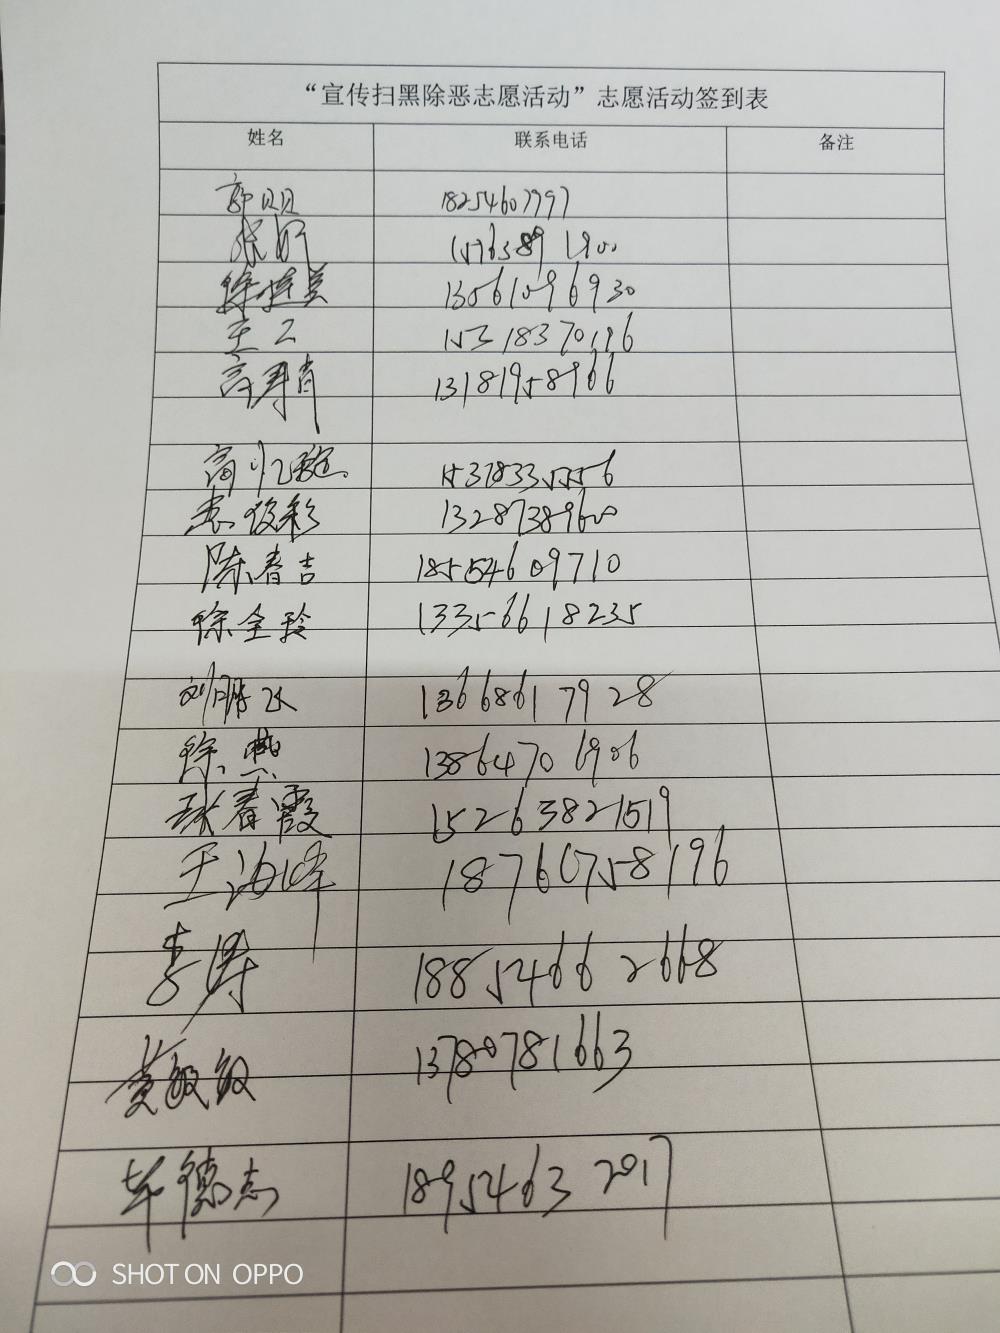 “宣传扫黑除恶志愿活动”志愿活动签到表
姓名 联系电话 备注
郭贝贝 18254607797
张娇 15763891900
徐桂美 13561096930
王工 15318370196
高寿肖 13181958966
高忆璇 15378335556
李俊彩 13287389600
陈春吉 18554609710
徐全玲 13356618235
刘鹏飞 13668617928
徐燕 13864706906
张春霞 15263821519
王海峰 18760758196
李涛 18854662668
黄敏敏 13780781663
毕德志 18954632017
SHOT ON OPPO